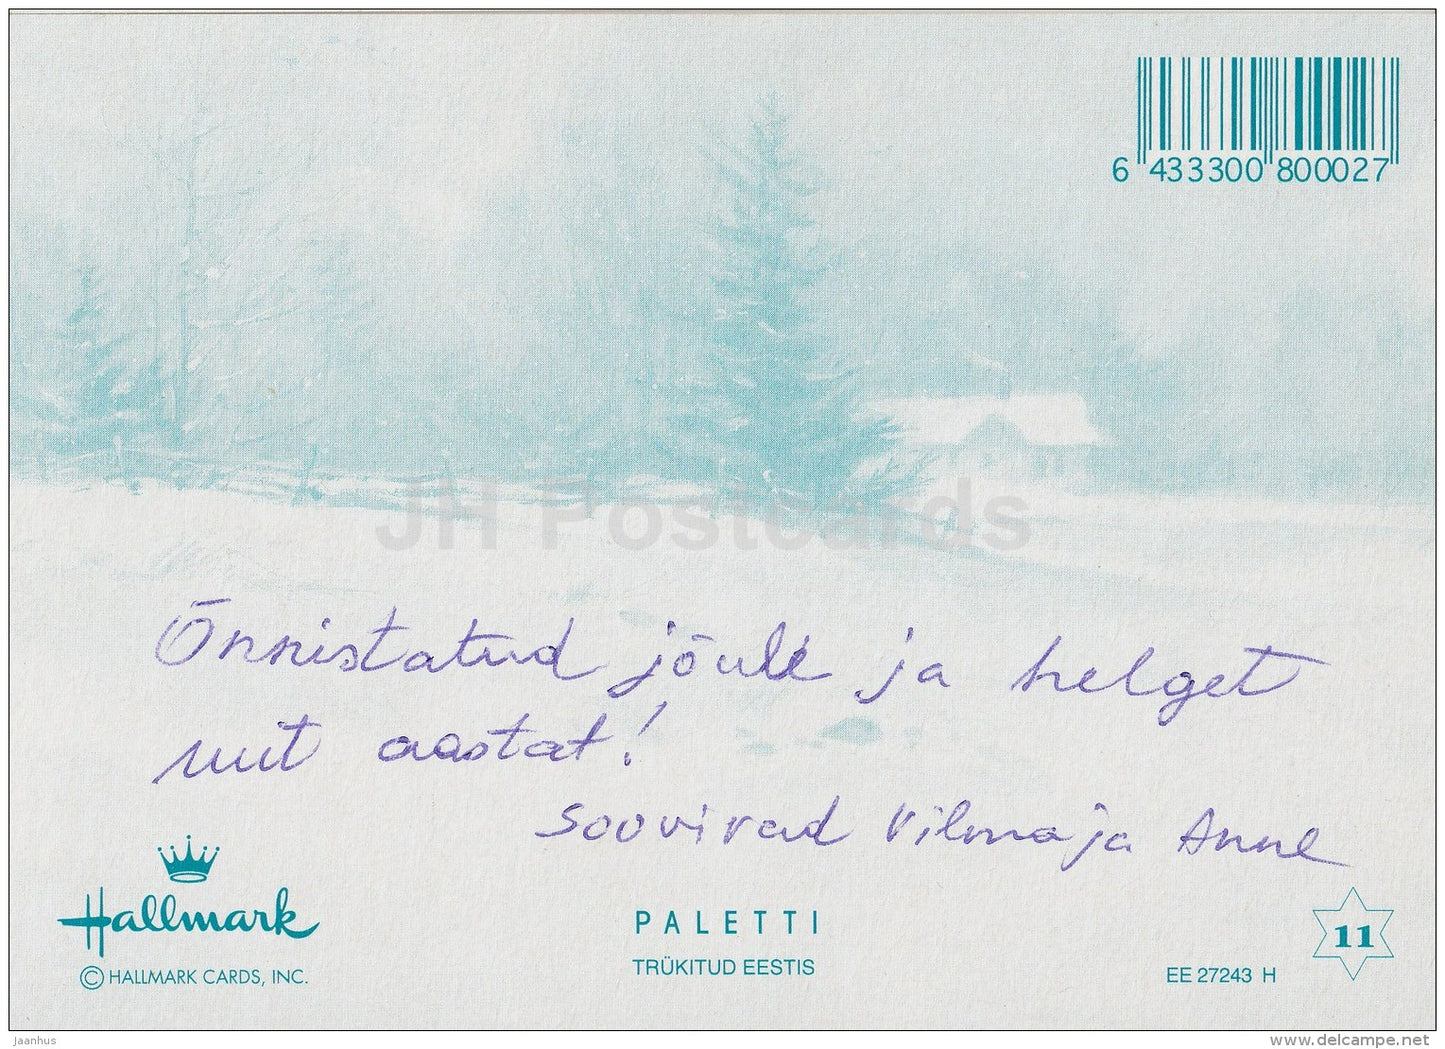 6 433300 800027
JH Postcards
Õnnistatud jõule ja helget
uut aastat!
Soovivad Vilma ja Anne
Hallmark
© HALLMARK CARDS, INC.
PALETTI
TRÜKITUD EESTIS
EE 27243 H
11
jaanhus
www.delcampe.net